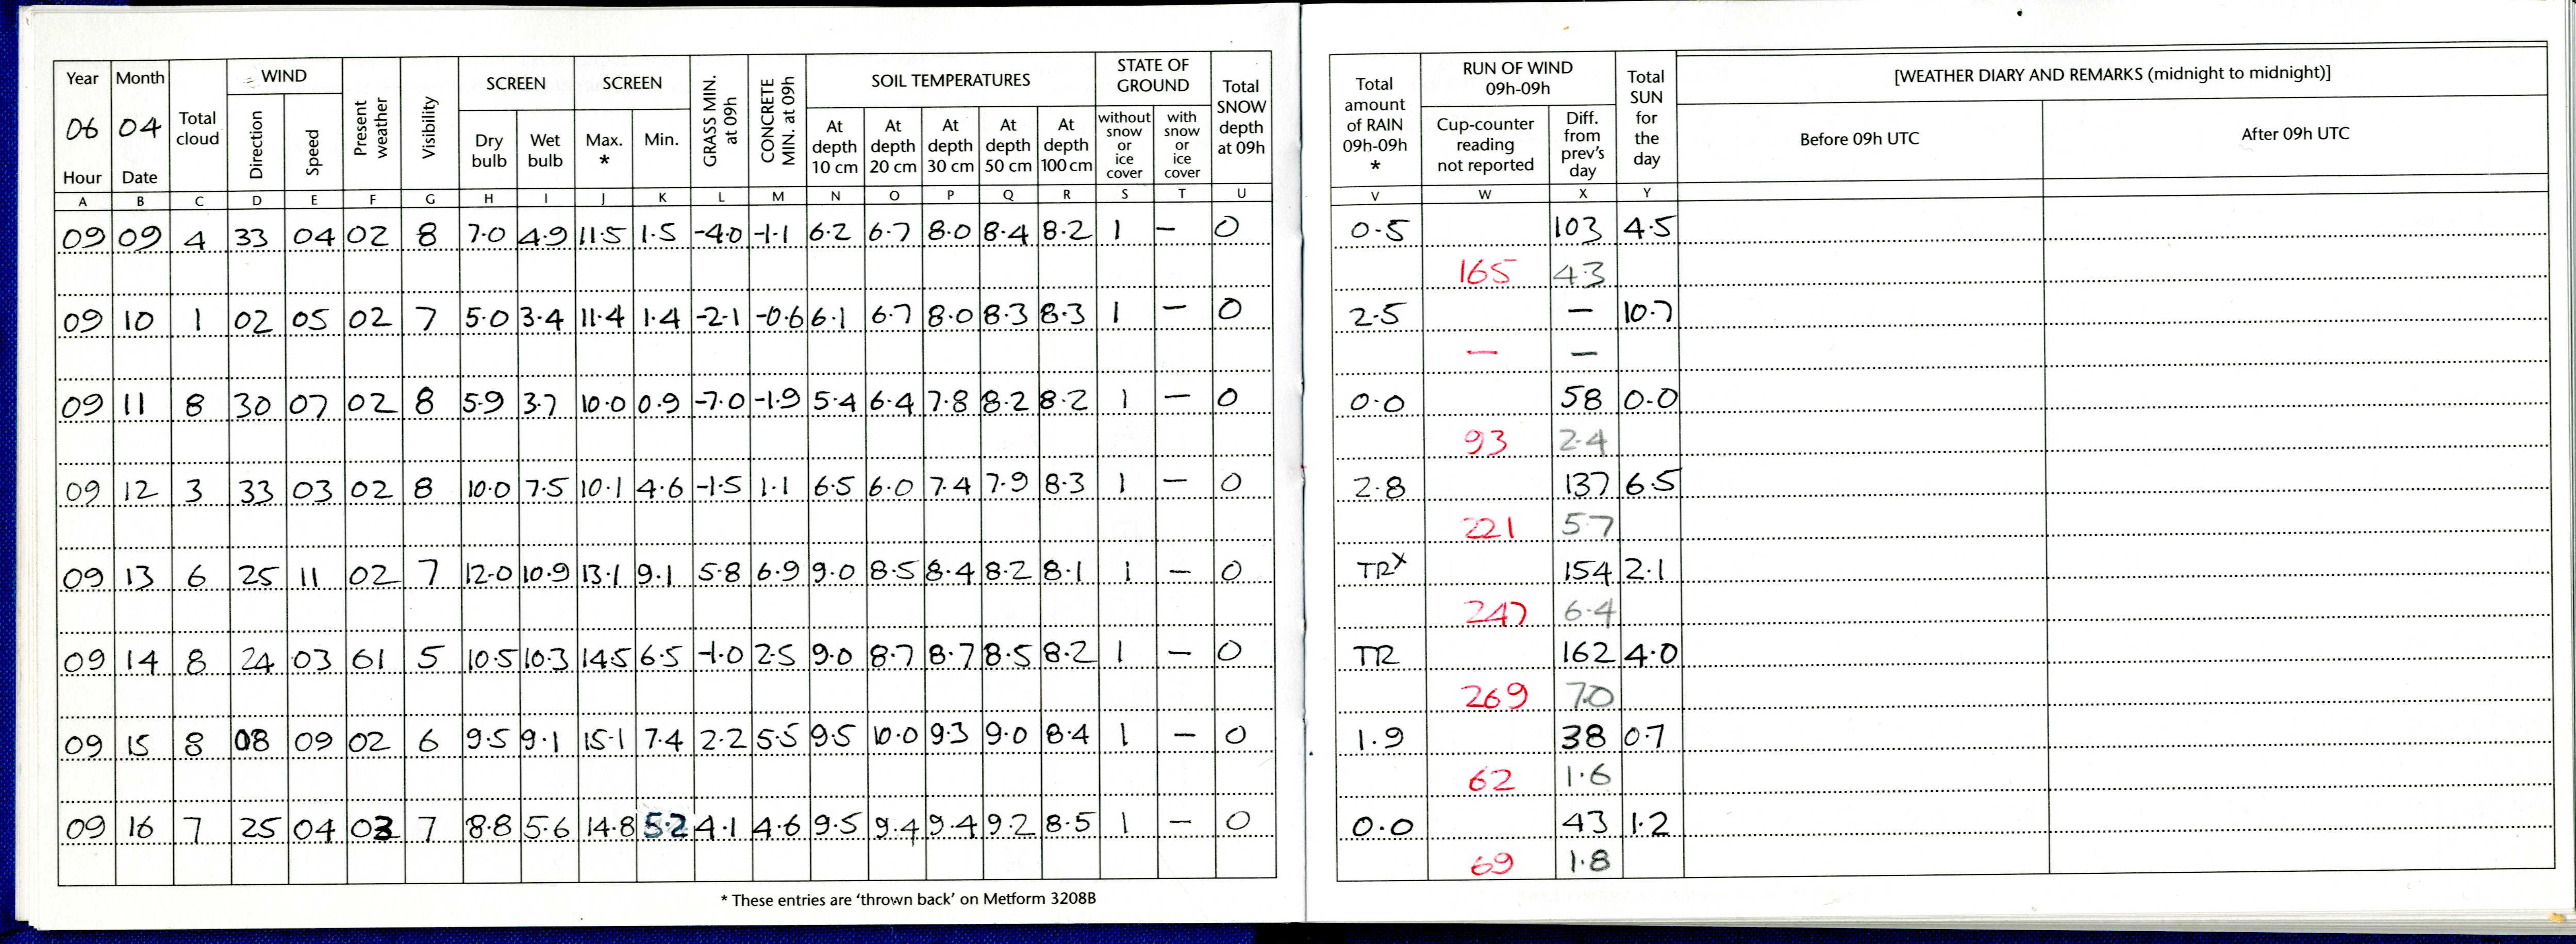 Year Month Total cloud WIND Present weather Visibility SCREEN SCREEN GRASS MIN. at 09h CONCRETE MIN. at 09h SOIL TEMPERATURES STATE OF GROUND Total SNOW depth at 09h Total amount of RAIN 09h-09h * RUN OF WIND 09h-09h Total SUN for the day [WEATHER DIARY AND REMARKS (midnight to midnight)]
06 04 Direction Speed Dry bulb Wet bulb Max. * Min. At depth 10 cm At depth 20 cm At depth 30 cm At depth 50 cm At depth 100 cm without snow or ice cover with snow or ice cover Cup-counter reading not reported Diff. from prev's day Before 09h UTC After 09h UTC
Hour Date
A B C D E F G H I J K L M N O P Q R S T U V W X Y
09 09 4 33 04 02 8 7.0 4.9 11.5 1.5 -4.0 -1.1 6.2 6.7 8.0 8.4 8.2 1 — 0 0.5 103 4.5
165 4.3
09 10 1 02 05 02 7 5.0 3.4 11.4 1.4 -2.1 -0.6 6.1 6.7 8.0 8.3 8.3 1 — 0 2.5 — 10.7
— —
09 11 8 30 07 02 8 5.9 3.7 10.0 0.9 -7.0 -1.9 5.4 6.4 7.8 8.2 8.2 1 — 0 0.0 58 0.0
93 2.4
09 12 3 33 03 02 8 10.0 7.5 10.1 4.6 -1.5 1.1 6.5 6.0 7.4 7.9 8.3 1 — 0 2.8 137 6.5
221 5.7
09 13 6 25 11 02 7 12.0 10.9 13.1 9.1 5.8 6.9 9.0 8.5 8.4 8.2 8.1 1 — 0 TRx 154 2.1
247 6.4
09 14 8 24 03 61 5 10.5 10.3 14.5 6.5 -1.0 2.5 9.0 8.7 8.7 8.5 8.2 1 — 0 TR 162 4.0
269 7.0
09 15 8 08 09 02 6 9.5 9.1 15.1 7.4 2.2 5.5 9.5 10.0 9.3 9.0 8.4 1 — 0 1.9 38 0.7
62 1.6
09 16 7 25 04 03 7 8.8 5.6 14.8 5.2 4.1 4.6 9.5 9.4 9.4 9.2 8.5 1 — 0 0.0 43 1.2
69 1.8
* These entries are 'thrown back' on Metform 3208B